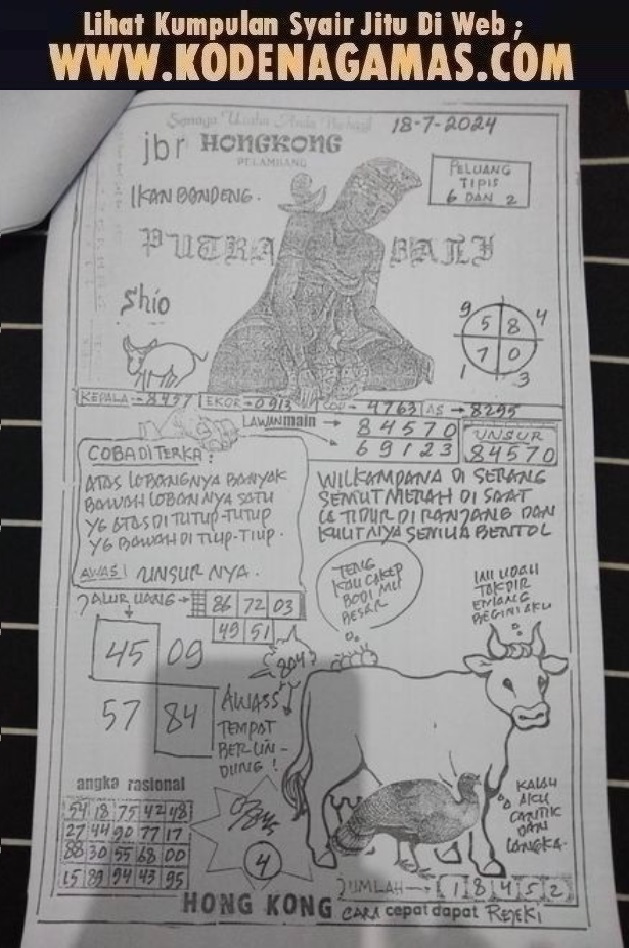 Lihat Kumpulan Syair Jitu Di Web ;
WWW.KODENAGAMAS.COM
Semoga Usaha Anda Berhasil
18-7-2024
jbr HONGKONG
PELAMBANG
PELUANG
TIPIS
6 DAN 2
IKAN BANDENG.
PUTRA BALI
Shio
9 4
5 8
7 0
1 3
KEPALA → 8457 EKOR → 0913 COP → 4763 AS → 8295
LAWAN main → 84570
69123
UNSUR
84570
COBA DI TERKA :
ATAS LOBANGNYA BANYAK
BAWAH LOBANNYA SATU
YG ATAS DI TUTUP-TUTUP
YG BAWAH DI TIUP-TIUP.
AWAS! UNSUR NYA.
WILKAMPANA DI SERANG
SEMUT MERAH DI SAAT
IA TIDUR DI RANJANG DAN
KULITNYA SEMUA BENTOL
JALUR UANG → 86 72 03
49 51
TENG
KAU CAKEP
BODI MU
BESAR
INI UDAH
TAKDIR
EMANG
BEGINI AKU
45 09
57 84
804
AWASS
TEMPAT
BERLIN-
DUNG !
KALAU
AKU
CANTIK
DAN
LANGKA.
angka rasional
54 18 75 42 48
27 44 90 77 17
88 30 55 68 00
15 89 94 43 95
4
JUMLAH → 1 8 4 5 2
HONG KONG CARA cepat dapat REJEKI